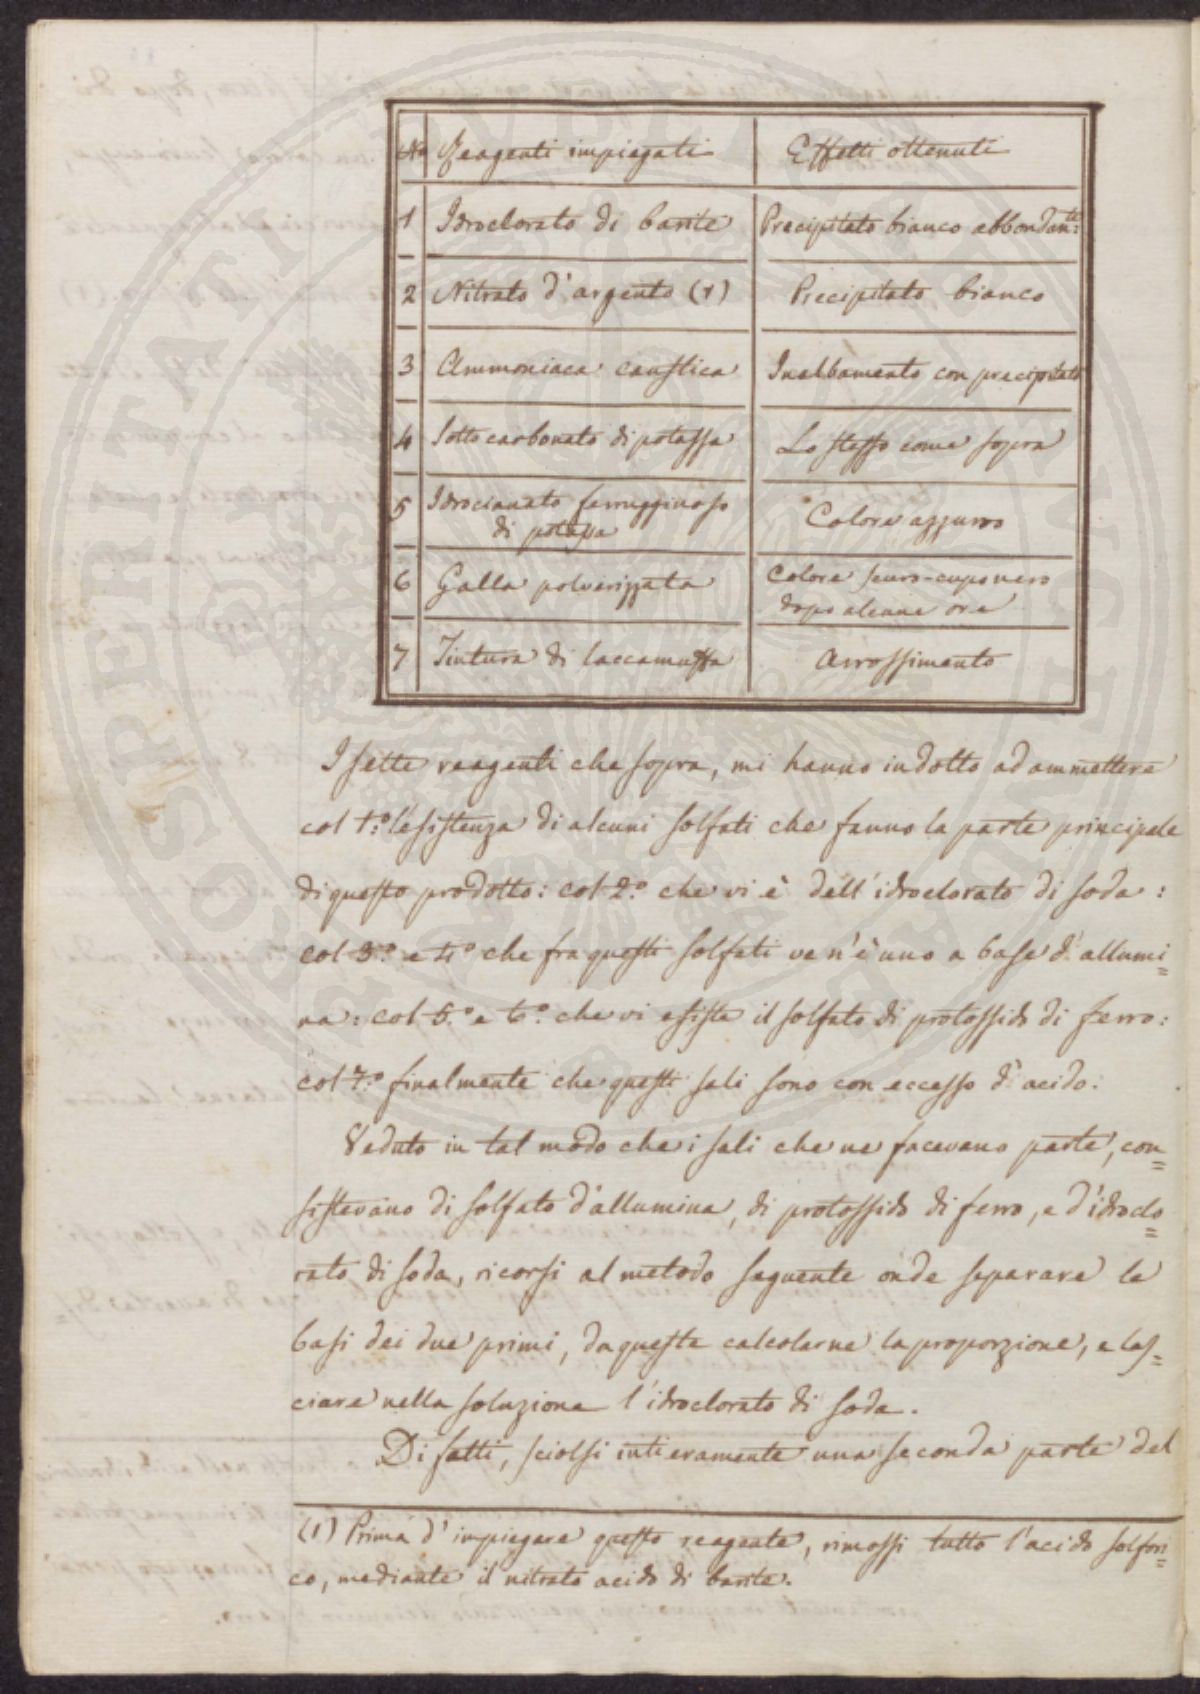 No Reagenti impiegati Effetti ottenuti
1 Idroclorato di barite Precipitato bianco abbondan:te
2 Nitrato d'argento (1) Precipitato bianco
3 Ammoniaca caustica Inalbamento con precipitato
4 Sottocarbonato di potassa Lo stesso come sopra
5 Idrocianato ferrugginoso di potassa Colore azzurro
6 Galla polverizzata Colore scuro-cupo nero dopo alcune ore
7 Tintura di laccamuffa Arrossimento
I sette reagenti che sopra, mi hanno indotto ad ammettere
col 1.º l'esistenza di alcuni solfati che fanno la parte principale
di questo prodotto: col 2.º che vi è dell'idroclorato di soda:
col 3.º e 4.º che fra questi solfati ve n'è uno a base d'allumi=
na: col 5.º e 6.º che vi esiste il solfato di protossido di ferro:
col 7.º finalmente che questi sali sono con eccesso d'acido.
Veduto in tal modo che i sali che ne facevano parte, con=
sistevano di solfato d'allumina, di protossido di ferro, e d'idroclo=
rato di soda, ricorsi al metodo seguente onde separare le
basi dei due primi, da queste calcolarne la proporzione, e las=
ciare nella soluzione l'idroclorato di soda.
Di fatti, sciolsi intieramente una seconda parte del
(1) Prima d'impiegare questo reagente, rimossi tutto l'acido solfori=
co, mediante il nitrato acido di barite.
PROSPERITATI PUBLICAE AUGENDAE